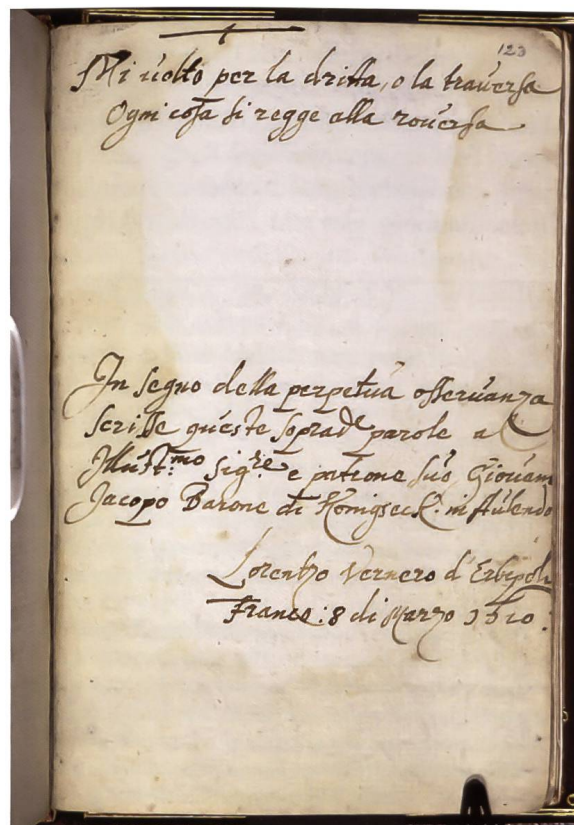 123
Mi uolto per la dritta, o la trauersa
Ogni cosa si regge alla rouersa
In segno della perpetua osseruanza
scrisse queste sopradᵉ parole al
Illustᵐᵒ Sigʳᵉ e patrone suo, Giouann
Jacopo Barone di Königseck in Aulendo
Lorentzo Vernero d'Erbipoli
Franco: 8 di Marzo 1610: